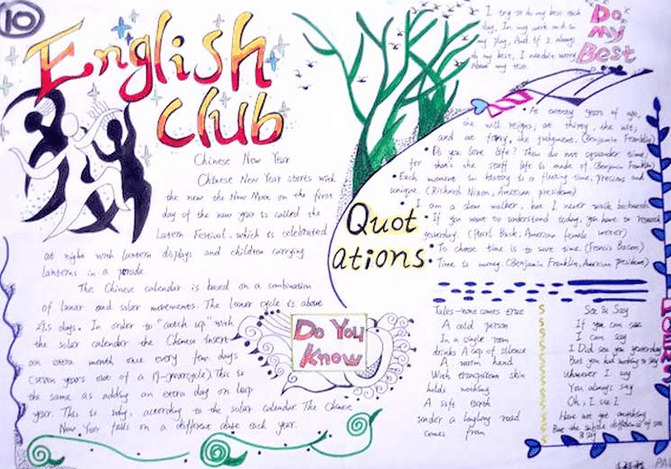 10
English
Club
Chinese New Year
Chinese New Year starts with
the new the New Moon on the first
day of the new year is called the
Lantern Festival, which is celebrated
at night with lantern displays and children carrying
lanterns in a parade.
The Chinese calendar is based on a combination
of lunar and solar movements. The lunar cycle is about
29.5 days. In order to "catch up" with
the solar calendar the Chinese insert
an extra month once every few
years out of a This is
the same as adding an extra day on leap
year. This is why, according to the solar calendar. The Chinese
New Year falls on a different date each year.
Do You
Know
I try to do my best each
day, In my work and in
my play, And if I always
do my best, I needn't worry
about my
Do
My
Best
Quot
ations:
At twenty years of age,
the will reigns, at thirty, the wit,
and at forty, the judgment. (Benjamin Franklin)
Do you love life? Then do not squander time,
for that's the stuff life is made of (Benjamin Franklin)
Each moment in history is a fleeting time, precious and
unique. (Richard Nixon, American president)
I am a slow but I never walk backwards.
If you want to understand today, you have to research
yesterday. (Pearl Buck, American female writer)
To choose time is to save time. (Francis Bacon)
Time is money. (Benjamin Franklin, American president)
Tales come true
A cold person
In a single room
drinks A cup of silence
A warm hand
With skin
holds nothing
A safe earth
under a road
comes from
See & Say
If you can see
I can say
I Did see you yesterday
But you had nothing to say
Whatever I say
You always say
Oh, I see!
Have we got something
But the subtle difference of see
& say